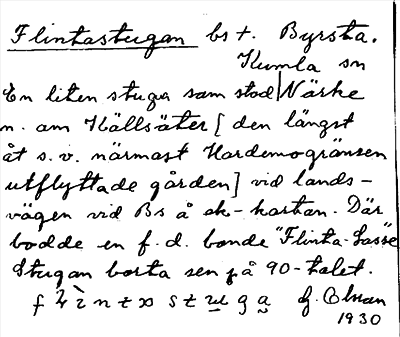 Flintastugan bst. Byrsta.
Kumla sn
En liten stuga som stod Närke
n. om Hällsäter [den längst
åt s.v. närmast Hardemogränsen
utflyttade gården] vid lands-
vägen vid Bs å ek-kartan. Där
bodde en f.d. bonde "Flinta-Lasse"
Stugan borta sen på 90-talet.
1930